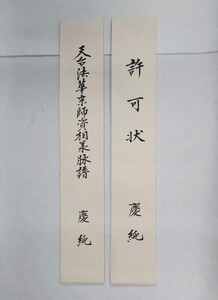 許可状 慶純
天台法華宗師資相承脉譜 慶純